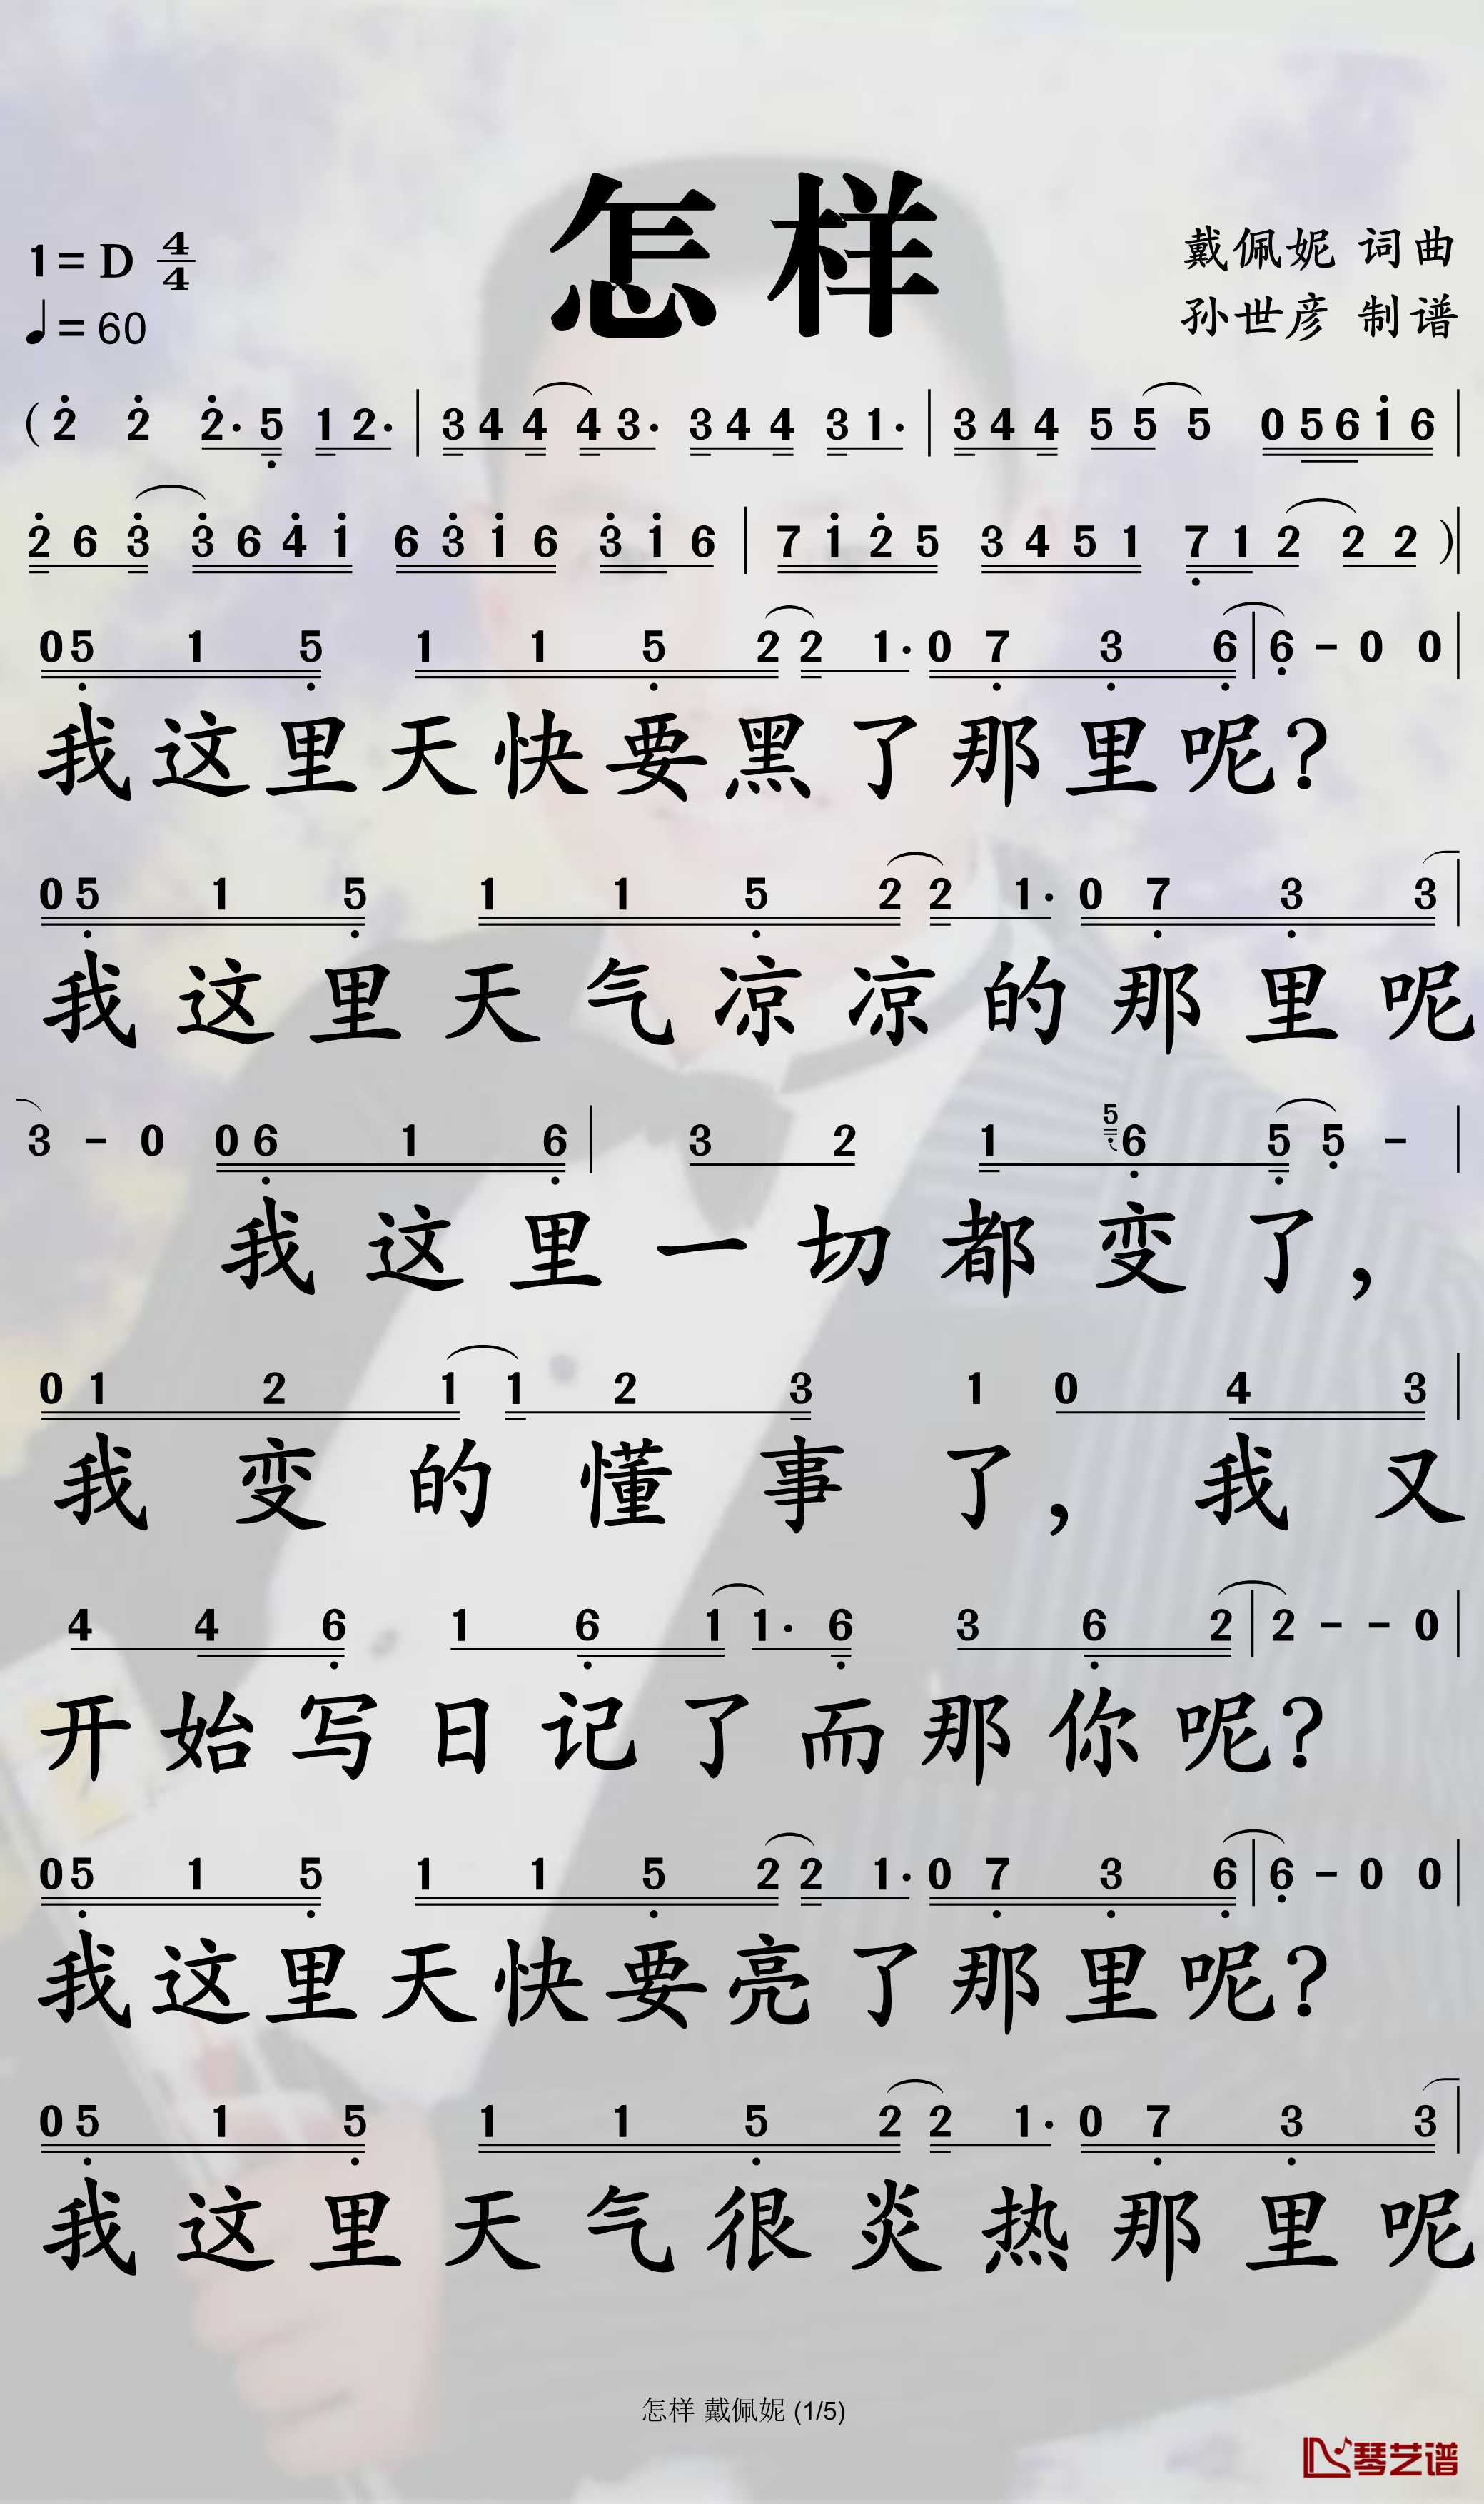 怎样
1=D 4/4
♩=60
戴佩妮 词曲
孙世彦 制谱
( 2̇ 2̇ 2̇· 5̣ 1 2· | 3 4 4 4 3· 3 4 4 3 1· | 3 4 4 5 5 5 0 5 6 1̇ 6 |
2̇ 6 3̇ 3̇ 6 4̇ 1̇ 6 3̇ 1̇ 6 3̇ 1̇ 6 | 7 1̇ 2̇ 5 3 4 5 1 7̣ 1 2 2 2 ) |
0 5̣ 1 5̣ 1 1 5̣ 2 2 1· 0 7̣ 3̣ 6̣ | 6̣ - 0 0 |
我这里天快要黑了那里呢?
0 5̣ 1 5̣ 1 1 5̣ 2 2 1· 0 7̣ 3̣ 3 |
我这里天气凉凉的那里呢
3 - 0 0 6̣ 1 6̣ | 3 2 1 5̣ 6̣ 5̣ 5̣ - |
我这里一切都变了,
0 1 2 1 1 2 3 1 0 4 3 |
我变的懂事了,我又
4 4 6̣ 1 6̣ 1 1· 6̣ 3 6̣ 2 | 2 - - 0 |
开始写日记了而那你呢?
0 5̣ 1 5̣ 1 1 5̣ 2 2 1· 0 7̣ 3̣ 6̣ | 6̣ - 0 0 |
我这里天快要亮了那里呢?
0 5̣ 1 5̣ 1 1 5̣ 2 2 1· 0 7̣ 3̣ 3 |
我这里天气很炎热那里呢
怎样 戴佩妮 (1/5)
琴艺谱